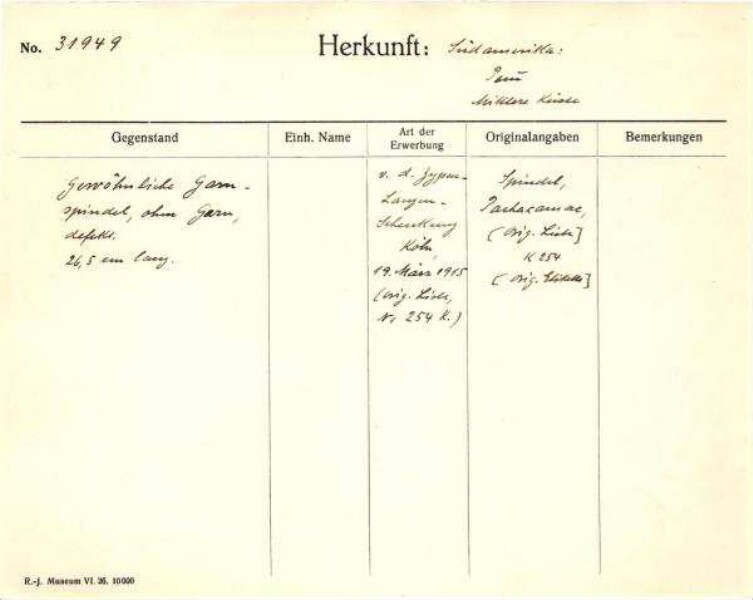 No. 31949 Herkunft: Südamerika:
Peru
Mittlere Küste
Gegenstand Einh. Name Art der Erwerbung Originalangaben Bemerkungen
Gewöhnliche Garn-
spindel, ohne Garn,
defekt.
26,5 cm lang.
v. d. Zypen-
Langen-
Schenkung
Köln,
19. März 1915
(Orig. Liste,
Nr 254 K.)
Spindel,
Pachacamac,
(Orig. Liste]
K 254
(Orig. Etikette]
R.-J. Museum VI. 26. 10000